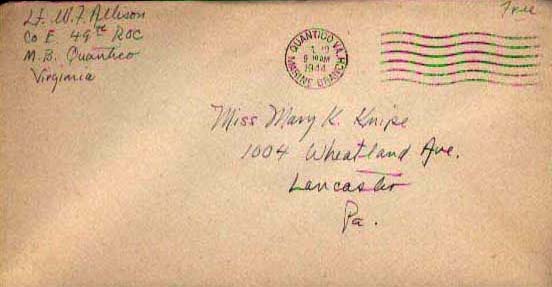 Lt. W. F. Allison
Co E 49th ROC
M. B. Quantico
Virginia
Free
QUANTICO VA.
9 30AM
1944
MARINE BRANCH
Miss Mary K. Knipe
1004 Wheatland Ave.
Lancaster
Pa.